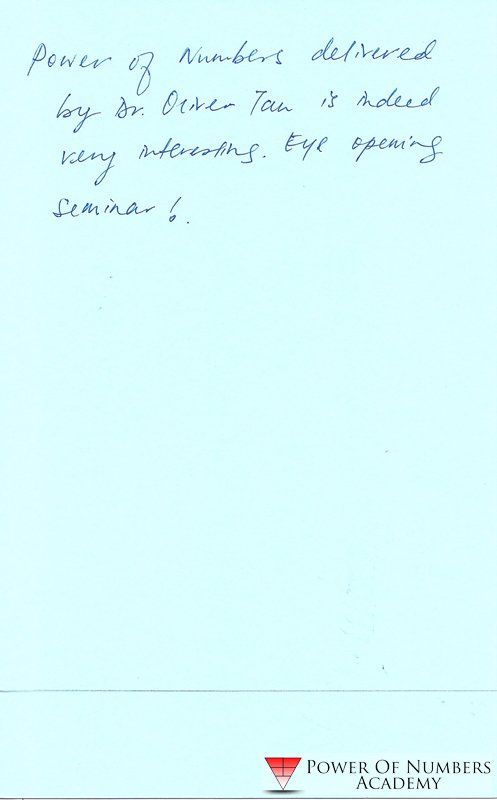 Power of Numbers delivered
by Dr. Oliver Tan is indeed
very interesting. Eye opening
Seminar!
POWER OF NUMBERS
ACADEMY